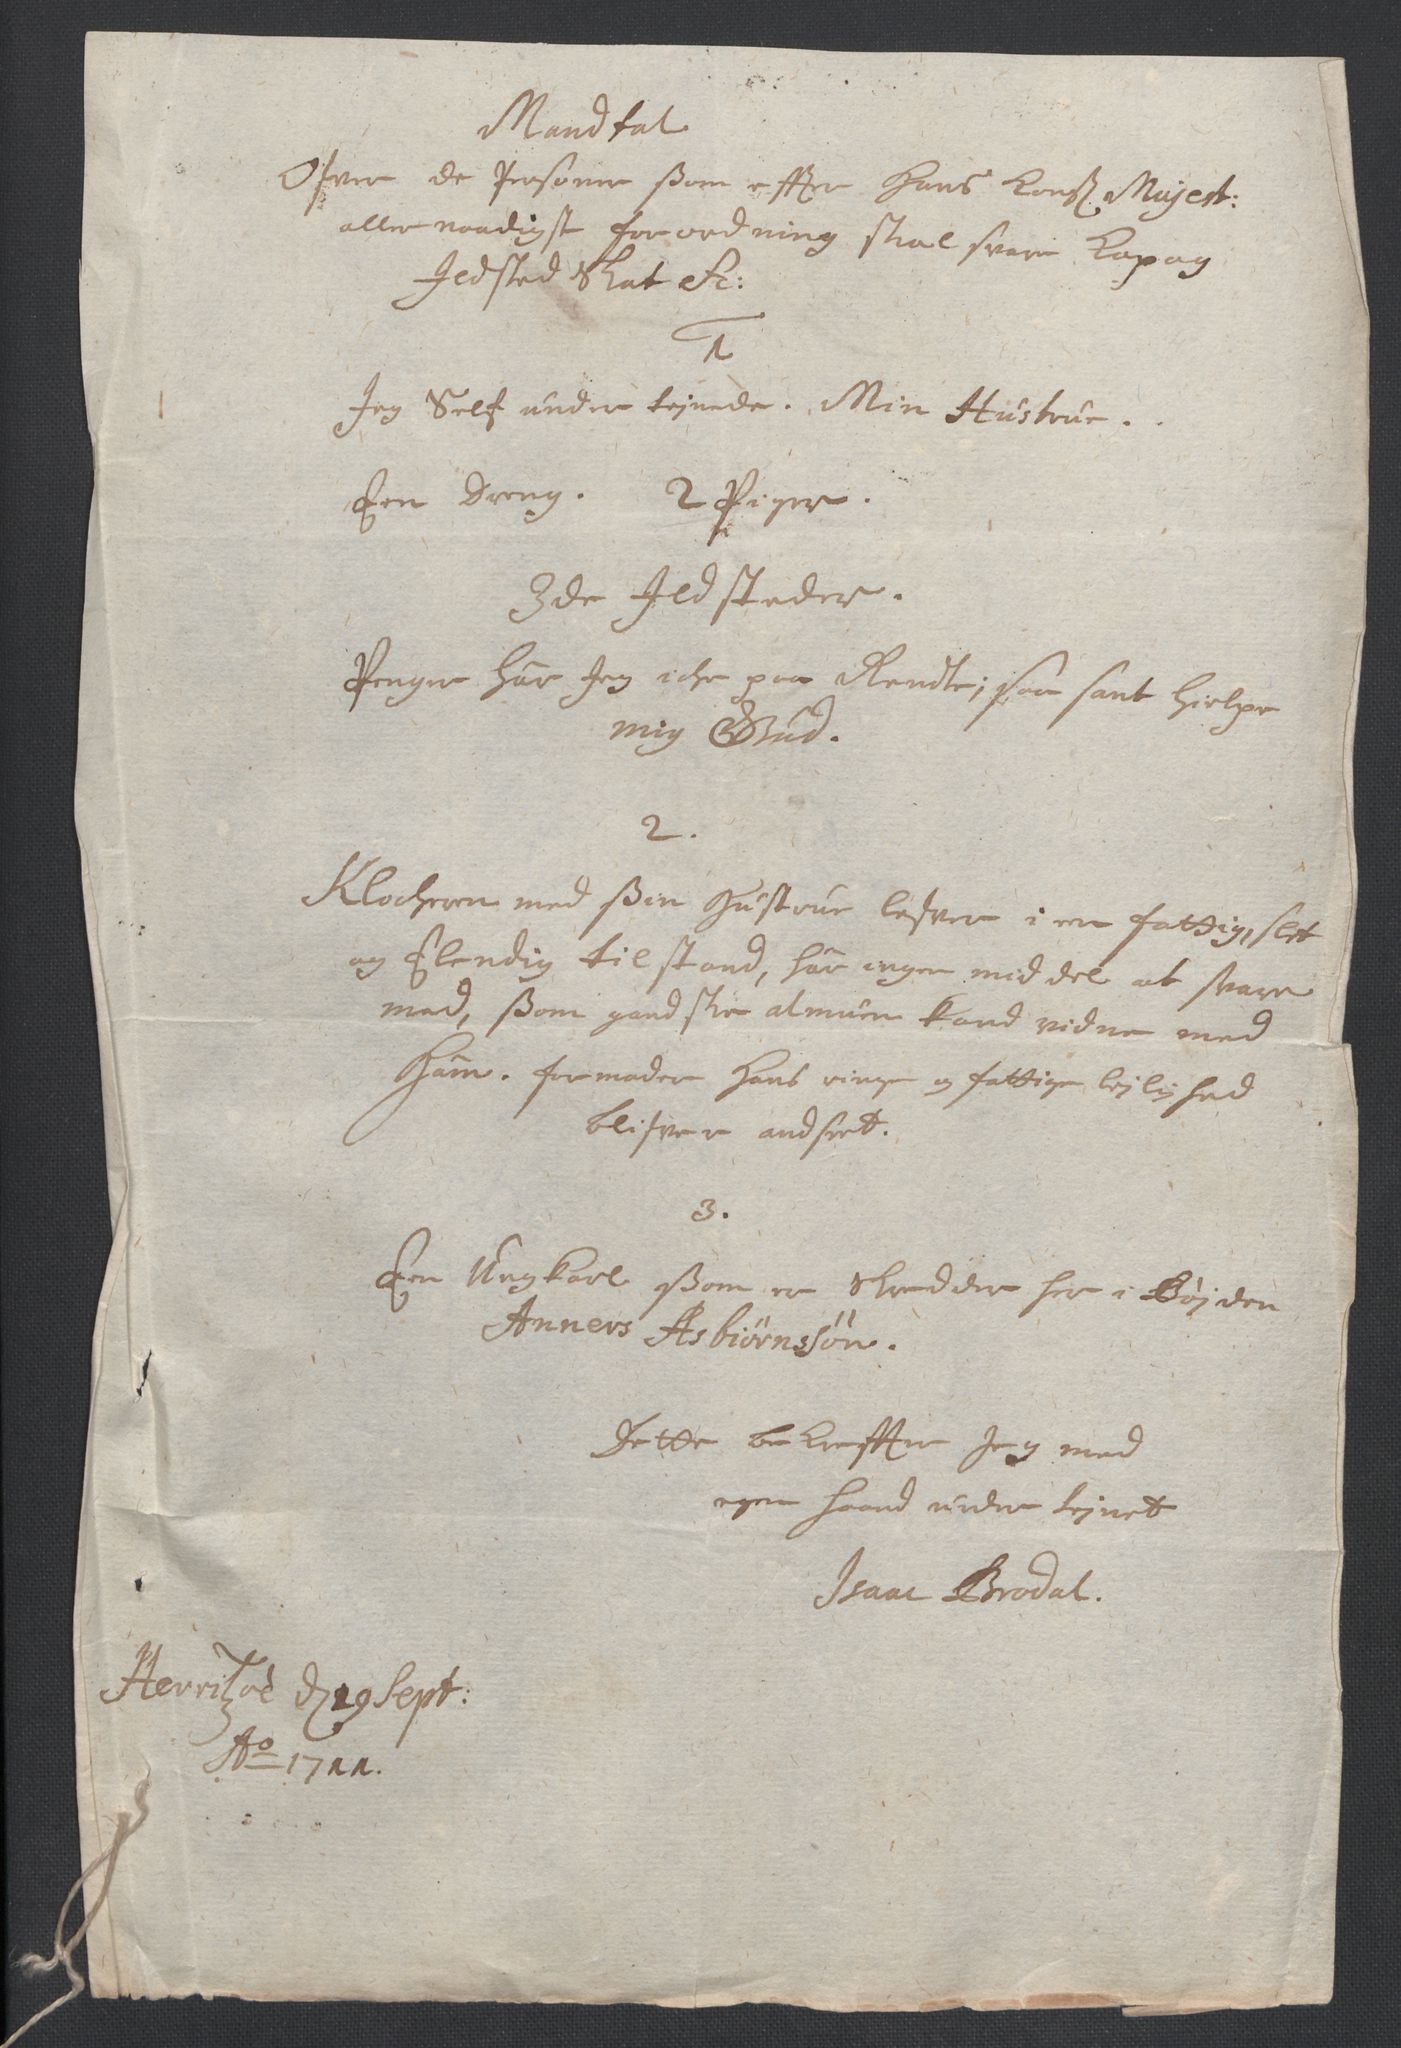 Mandtal
Ofver de Persaner ßom effter Hans Kongl Majest:
allernaadigst forordning skal svare Kop og
Ildsted Skat etc:
1
Jeg Self under tejnede. Min Hustrue.
Een Dreng. 2 Piger.
3de Ildsteder.
Penger har Jeg iche paa Rendte; saa sant hielpe
mig Gud.
2.
Klocheren med ßin Hustrue lefver i en fattig, slet
og Elendig tilstand, har ingen middel at svare
med, ßom gandske almuen kand vidne med
Ham. formoder Hans ringe og fattige lejlighed
blifver andseet.
3.
Een Ungkarl ßom er Skredder her i Böjden
Anners Asbiörnssön.
Dette bekreffter Jeg med
egen Haand under tejnet
Isaac Brodal.
Herritzöe d 29 Sept:
Ao 1711.